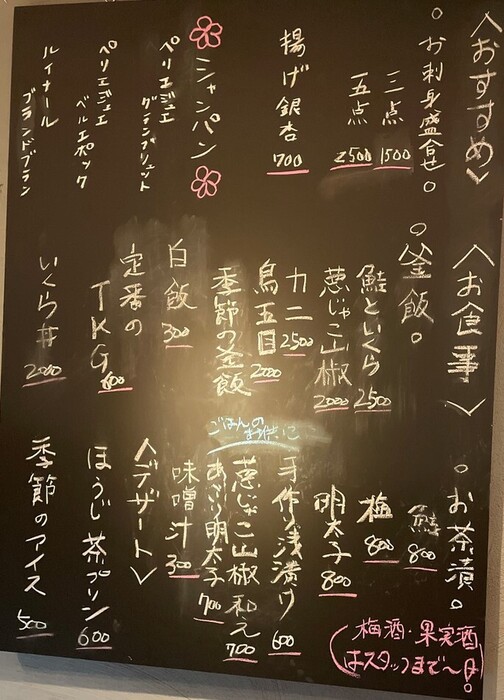 〈おすすめ〉
○お刺身盛合せ○
三点 1500
五点 2500
揚げ銀杏 700
シャンパン
ペリエジュエ グランブリュット
ペリエジュエ ベルエポック
ルイナール ブランドブラン
〈お食事〉
○釜飯○
鮭といくら 2500
葱じゃこ山椒 2000
カニ 2500
鳥五目 2000
季節の釜飯
白飯 300
定番のTKG 600
いくら丼 2000
○お茶漬○
鮭 800
梅 800
明太子 800
ごはんのお供に
手作り浅漬け 600
葱じゃこ山椒和え 700
あぶり明太子 700
味噌汁 300
〈デザート〉
ほうじ茶プリン 600
季節のアイス 500
梅酒・果実酒はスタッフまで〜